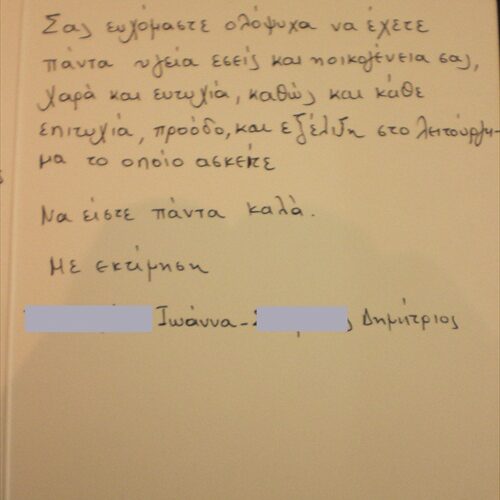 Σας ευχόμαστε ολόψυχα να έχετε
πάντα υγεία εσείς και η οικογένεια σας,
χαρά και ευτυχία, καθώς και κάθε
επιτυχία, προόδο, και εξέλιξη στο λειτούργη-
μα το οποίο ασκείτε
Να είστε πάντα καλά.
Με εκτίμηση
Ιωάννα - ς Δημήτριος